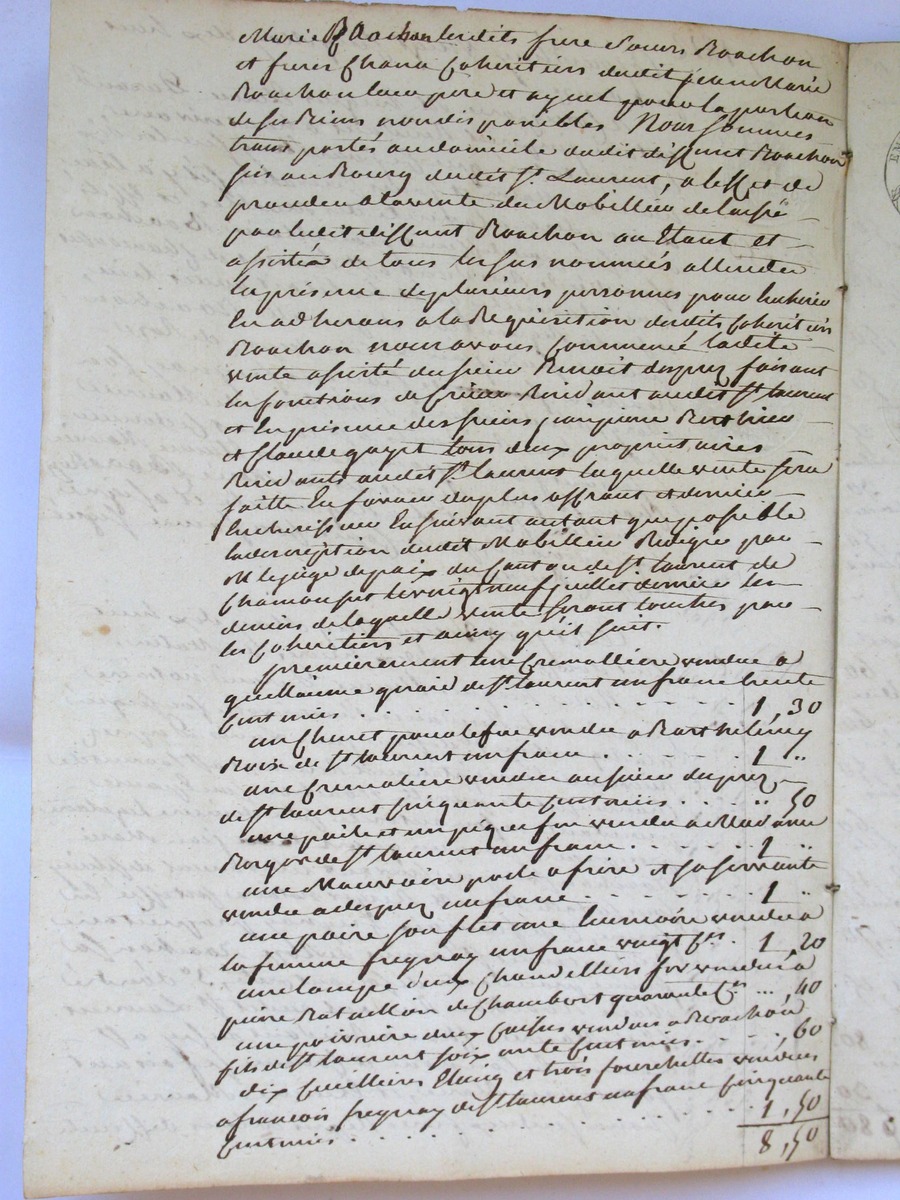 Marie Roachon lesdits frere soeurs Roachon
et freres Chana cohéritiers dudit jean Marie
Roachon leur père et ayeul pour la portion
de ses Biens non disponibles Nous sommes
transportés au domicile dudit défunt Roachon
sis au Bourg dudit St. Laurent, a l'effet de
proceder a la vente du Mobillier delaissé
par ledit défunt Roachon ou Etant et
assistés de tous les sus nommés attendu
la présence de plusieurs personnes pour Encherir
En adherans a la Réquisition desdits cohéritiers
Roachon nous avons commencé ladite
vente assisté du sieur Benoit duprez faisant
les fonctions de crieur Résidant audit St. laurent
et En présence des sieurs jean pierre Berthier
et Claude gayet tous deux propriétaires
Résidants audit St. laurent laquelle vente sera
faitte En faveur du plus offrant et dernier
Encherisseur En suivant autant que possible
la description dudit Mobillier Rédigée par
M le juge de paix du canton de St. laurent de
Chamousset le vingt neuf juillet dernier les
deniers de laquelle vente seront touchés par
les cohéritiers et ainsy qu'il suit.
premierement une Cremallière vendue a
guillaume de St. laurent un franc trente
Centimes . . . . . . . . 1, 30
un Chenet pour le feu vendu a Barthélemy
Roix de St. laurent un franc . . . . . 1 "
une Cremalière vendue au sieur duprez
de St. laurent cinquante centimes . . . . " 50
une poile et un pique feu vendu a Madame
de St. laurent un franc . . . . . . 1 "
une Mauvaise poele a frire et sa servante
vendu a duprez un franc . . . . . . 1 "
une paire souflet une vendu a
la femme fregnay un franc vingt Ces. 1, 20
une lampe deux Chandelliers fer vendus a
pierre Bataillon de Chambost quarante Ces ... 40
une poivrière deux vendus a Roachon
fils de St. laurent soixante Centimes . . . . , 60
dix Cuillieres Etaing et trois fourchettes vendues
a francois fregnay de St. laurent un franc cinquante
Centimes . . . . . . . . 1, 50
8, 50